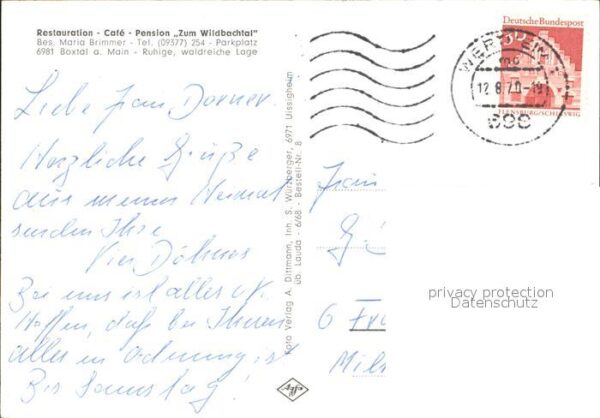 Restauration - Café - Pension „Zum Wildbachtal"
Bes. Maria Brimmer - Tel. (09377) 254 - Parkplatz
6981 Boxtal a. Main - Ruhige, waldreiche Lage
Liebe Frau Dorner.
Herzliche Grüße
aus meiner Heimat
senden Ihre
Vier Döhner
Bei uns ist alles ok.
Hoffen, daß bei Ihnen
alles in Ordnung ist
Bis Samstag!
Foto Verlag A. Dittmann, Inh. S. Würzberger, 6971 Uissigheim
üb. Lauda - 6/68 - Bestell-Nr. 8
Agfa
Deutsche Bundespost
FLENSBURG/SCHLESWIG
WERTHEIM
12.8.70-18
698
Frau
6 Fra
privacy protection
Datenschutz